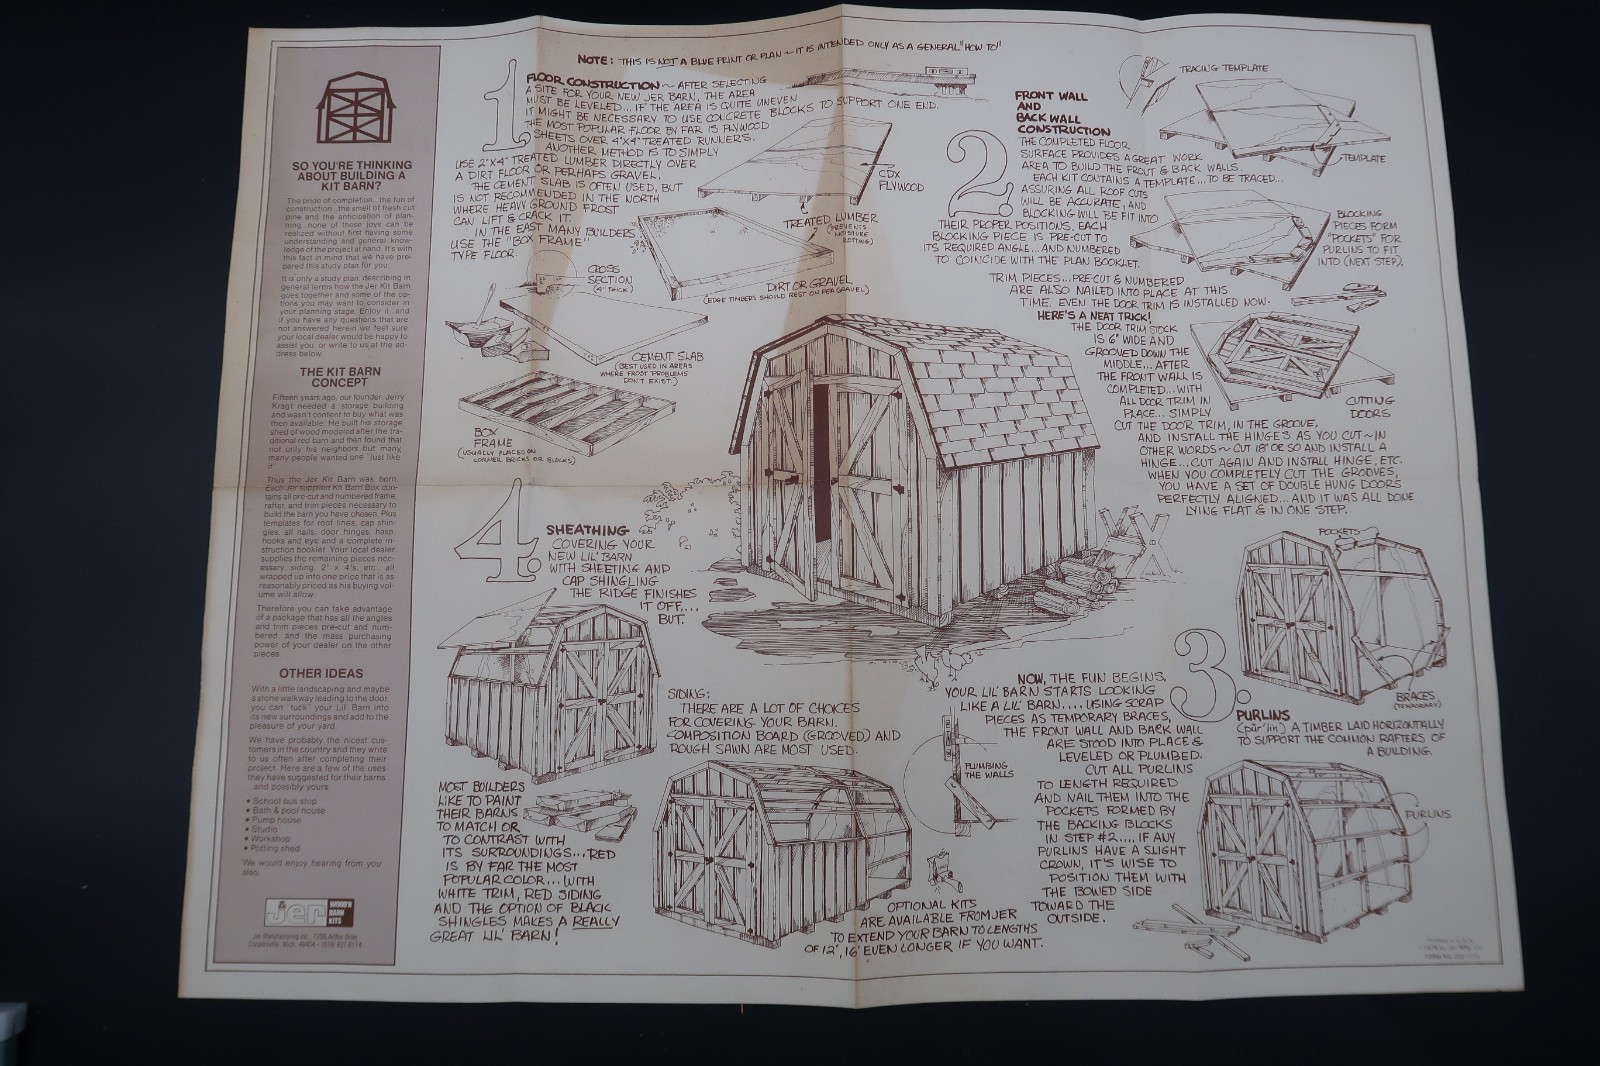 SO YOU'RE THINKING
ABOUT BUILDING A
KIT BARN?
The pride of completion...the fun of
construction...the smell of fresh cut
pine and the anticipation of plan-
ning, none of these joys can be
realized without first having some
understanding and general know-
ledge of the project at hand. It's with
this fact in mind that we have pre-
pared this study plan for you.
It is only a study plan, describing in
general terms how the Jer Kit Barn
goes together and some of the op-
tions you may want to consider in
your planning stage. Enjoy it...and
if you have any questions that are
not answered herein we feel sure
your local dealer would be happy to
assist you, or write to us at the ad-
dress below.
THE KIT BARN
CONCEPT
Fifteen years ago, our founder, Jerry
Kragt needed a storage building
and wasn't content to buy what was
then available. He built his storage
shed of wood modeled after the tra-
ditional red barn and then found that
not only his neighbors but many,
many people wanted one "just like
it".
Thus the Jer Kit Barn was born.
Each Jer supplied Kit Barn Box con-
tains all pre-cut and numbered frame,
rafter, and trim pieces necessary to
build the barn you have chosen. Plus
templates for roof lines, cap shin-
gles, all nails, door hinges, hasp,
hooks and eye and a complete in-
struction booklet. Your local dealer
supplies the remaining pieces nec-
essary, siding, 2' x 4's, etc., all
wrapped up into one price that is as
reasonably priced as his buying vol-
ume will allow.
Therefore you can take advantage
of a package that has all the angles
and trim pieces pre-cut and num-
bered, and the mass purchasing
power of your dealer on the other
pieces.
OTHER IDEAS
With a little landscaping and maybe
a stone walkway leading to the door,
you can "tuck" your Lil' Barn into
its new surroundings and add to the
pleasure of your yard.
We have probably the nicest cus-
tomers in the country and they write
to us often after completing their
project. Here are a few of the uses
they have suggested for their barns
...and possibly yours.
• School bus stop
• Bath & pool house
• Pump house
• Studio
• Workshop
• Potting shed
We would enjoy hearing from you
also.
Jer WOOD'N
BARN
KITS
Jer Manufacturing Inc., 7205 Arthur Drive
Coopersville, Mich. 49404 • (616) 837-8174
NOTE: THIS IS NOT A BLUE PRINT OR PLAN ~ IT IS INTENDED ONLY AS A GENERAL "HOW TO"
1.
FLOOR CONSTRUCTION ~ AFTER SELECTING
A SITE FOR YOUR NEW JER BARN, THE AREA
MUST BE LEVELED... IF THE AREA IS QUITE UNEVEN
IT MIGHT BE NECESSARY TO USE CONCRETE BLOCKS TO SUPPORT ONE END.
THE MOST POPULAR FLOOR BY FAR IS PLYWOOD
SHEETS OVER 4"X4" TREATED RUNNERS.
ANOTHER METHOD IS TO SIMPLY
USE 2"X4" TREATED LUMBER DIRECTLY OVER
A DIRT FLOOR OR PERHAPS GRAVEL.
THE CEMENT SLAB IS OFTEN USED, BUT
IS NOT RECOMMENDED IN THE NORTH
WHERE HEAVY GROUND FROST
CAN LIFT & CRACK IT.
IN THE EAST MANY BUILDERS
USE THE "BOX FRAME"
TYPE FLOOR.
CDX
PLYWOOD
TREATED LUMBER
(PREVENTS
MOISTURE
ROTTING)
DIRT OR GRAVEL
(EDGE TIMBERS SHOULD REST ON PEA GRAVEL)
CROSS
SECTION
(4" THICK)
CEMENT SLAB
(BEST USED IN AREAS
WHERE FROST PROBLEMS
DON'T EXIST.)
BOX
FRAME
(USUALLY PLACED ON
CORNER BRICKS OR BLOCKS)
2.
FRONT WALL
AND
BACK WALL
CONSTRUCTION
THE COMPLETED FLOOR
SURFACE PROVIDES A GREAT WORK
AREA TO BUILD THE FRONT & BACK WALLS.
EACH KIT CONTAINS A TEMPLATE... TO BE TRACED...
ASSURING ALL ROOF CUTS
WILL BE ACCURATE, AND
BLOCKING WILL BE FIT INTO
THEIR PROPER POSITIONS. EACH
BLOCKING PIECE IS PRE-CUT TO
ITS REQUIRED ANGLE... AND NUMBERED
TO COINCIDE WITH THE PLAN BOOKLET.
TRIM PIECES... PRE-CUT & NUMBERED
ARE ALSO NAILED INTO PLACE AT THIS
TIME. EVEN THE DOOR TRIM IS INSTALLED NOW.
HERE'S A NEAT TRICK!
THE DOOR TRIM STOCK
IS 6" WIDE AND
GROOVED DOWN THE
MIDDLE... AFTER
THE FRONT WALL IS
COMPLETED... WITH
ALL DOOR TRIM IN
PLACE... SIMPLY
CUT THE DOOR TRIM, IN THE GROOVE,
AND INSTALL THE HINGES AS YOU CUT ~ IN
OTHER WORDS ~ CUT 18" OR SO AND INSTALL A
HINGE... CUT AGAIN AND INSTALL HINGE, ETC.
WHEN YOU COMPLETELY CUT THE GROOVES,
YOU HAVE A SET OF DOUBLE HUNG DOORS
PERFECTLY ALIGNED... AND IT WAS ALL DONE
LYING FLAT & IN ONE STEP.
TRACING TEMPLATE
TEMPLATE
BLOCKING
PIECES FORM
"POCKETS" FOR
PURLINS TO FIT
INTO (NEXT STEP).
CUTTING
DOORS
3.
NOW, THE FUN BEGINS.
YOUR LIL' BARN STARTS LOOKING
LIKE A LIL' BARN.... USING SCRAP
PIECES AS TEMPORARY BRACES,
THE FRONT WALL AND BACK WALL
ARE STOOD INTO PLACE &
LEVELED OR PLUMBED.
CUT ALL PURLINS
TO LENGTH REQUIRED
AND NAIL THEM INTO THE
POCKETS FORMED BY
THE BACKING BLOCKS
IN STEP #2.... IF ANY
PURLINS HAVE A SLIGHT
CROWN, IT'S WISE TO
POSITION THEM WITH
THE BOWED SIDE
TOWARD THE
OUTSIDE.
POCKETS
BRACES
(TEMPORARY)
PURLINS
(pûr'lin) A TIMBER LAID HORIZONTALLY
TO SUPPORT THE COMMON RAFTERS OF
A BUILDING.
PURLINS
PLUMBING
THE WALLS
4.
SHEATHING
COVERING YOUR
NEW LIL' BARN
WITH SHEETING AND
CAP SHINGLING
THE RIDGE FINISHES
IT OFF....
BUT.
SIDING:
THERE ARE A LOT OF CHOICES
FOR COVERING YOUR BARN.
COMPOSITION BOARD (GROOVED) AND
ROUGH SAWN ARE MOST USED.
MOST BUILDERS
LIKE TO PAINT
THEIR BARNS
TO MATCH OR
TO CONTRAST WITH
ITS SURROUNDINGS... RED
IS BY FAR THE MOST
POPULAR COLOR... WITH
WHITE TRIM, RED SIDING
AND THE OPTION OF BLACK
SHINGLES MAKES A REALLY
GREAT LIL' BARN!
OPTIONAL KITS
ARE AVAILABLE FROM JER
TO EXTEND YOUR BARN TO LENGTHS
OF 12', 16' EVEN LONGER IF YOU WANT.